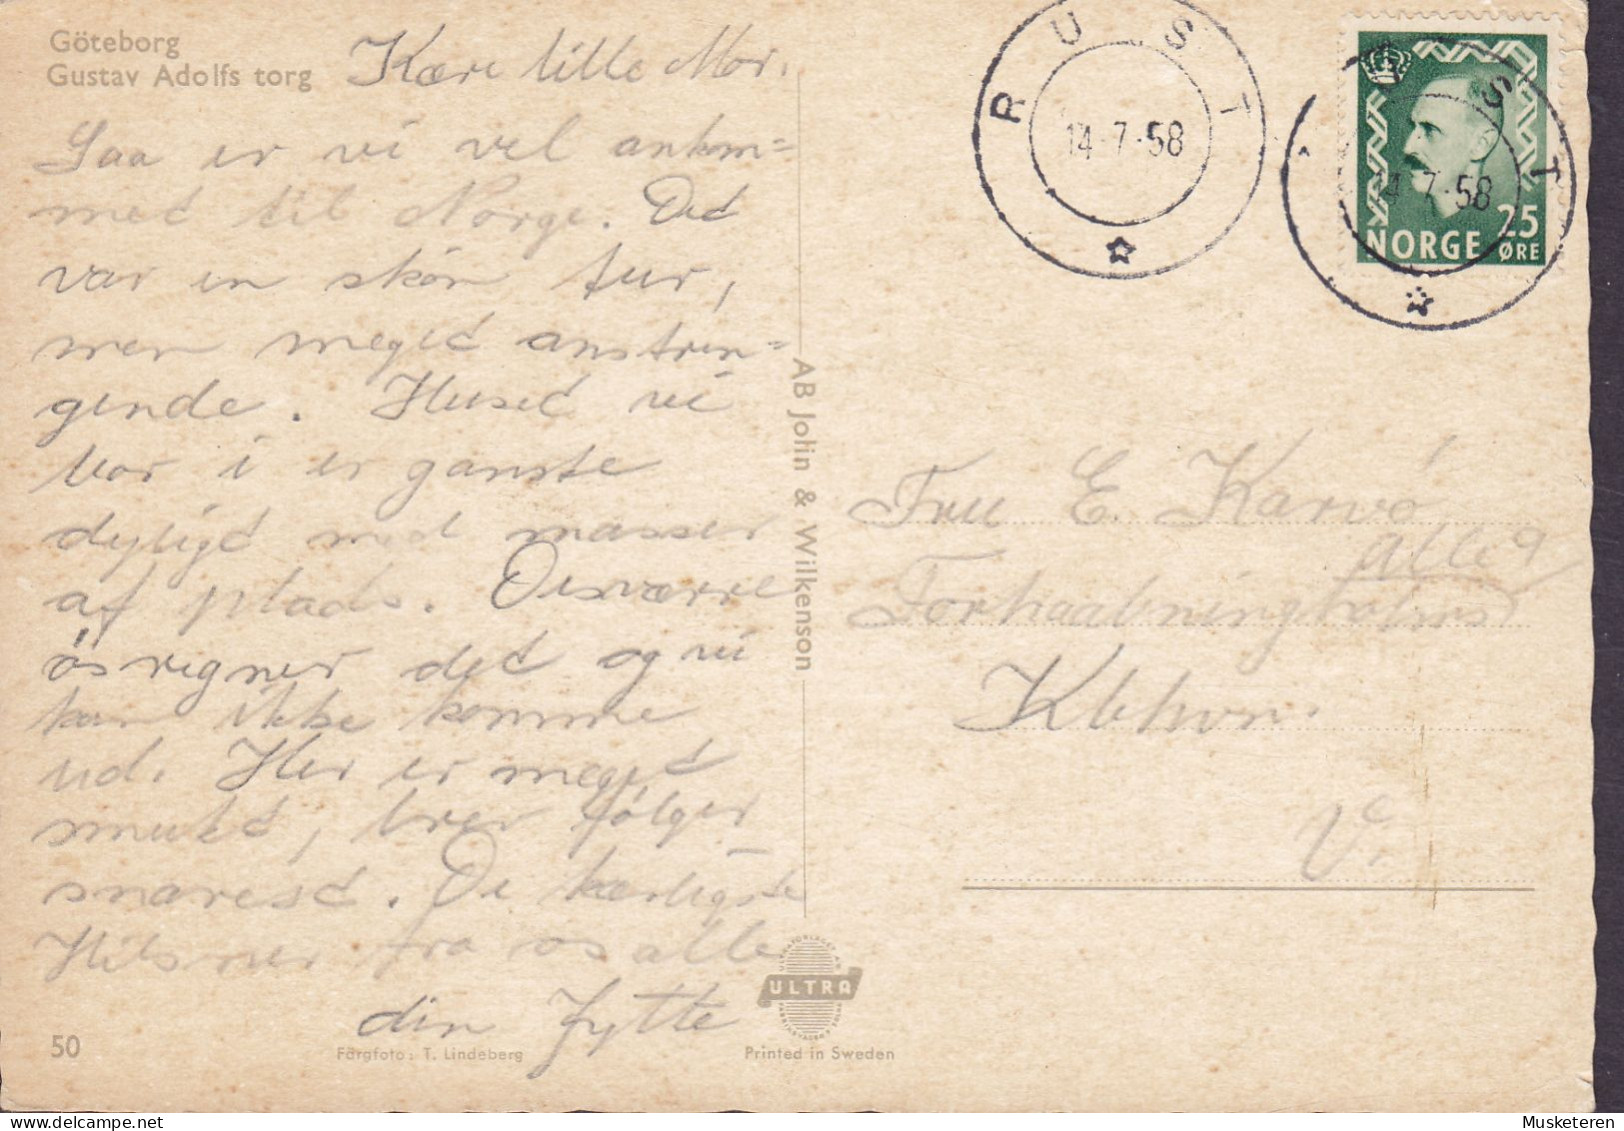 Göteborg
Gustav Adolfs torg
Kære lille Mor.
Saa er vi vel ankom=
med til Norge. Ded
var en skøn tur,
men meged anstrin=
gende. Hused vi
bor i er ganste
dyligd med masser
af plads. Desværre
øs regner det og vi
kan ikke komme
ud. Her er meged
smukd, brev følger
snaresd. De kærligste
Hilsner fra os alle
din Jytte
50
Färgfoto: T. Lindeberg
AB Jolin & Wilkenson
ULTRA
Printed in Sweden
RUST
14-7-58
RUST
14-7-58
25
NORGE ØRE
Fru E. Karvø
Alle 9
Forhaabningsholms
Kbhvn.
V.
Musketeren